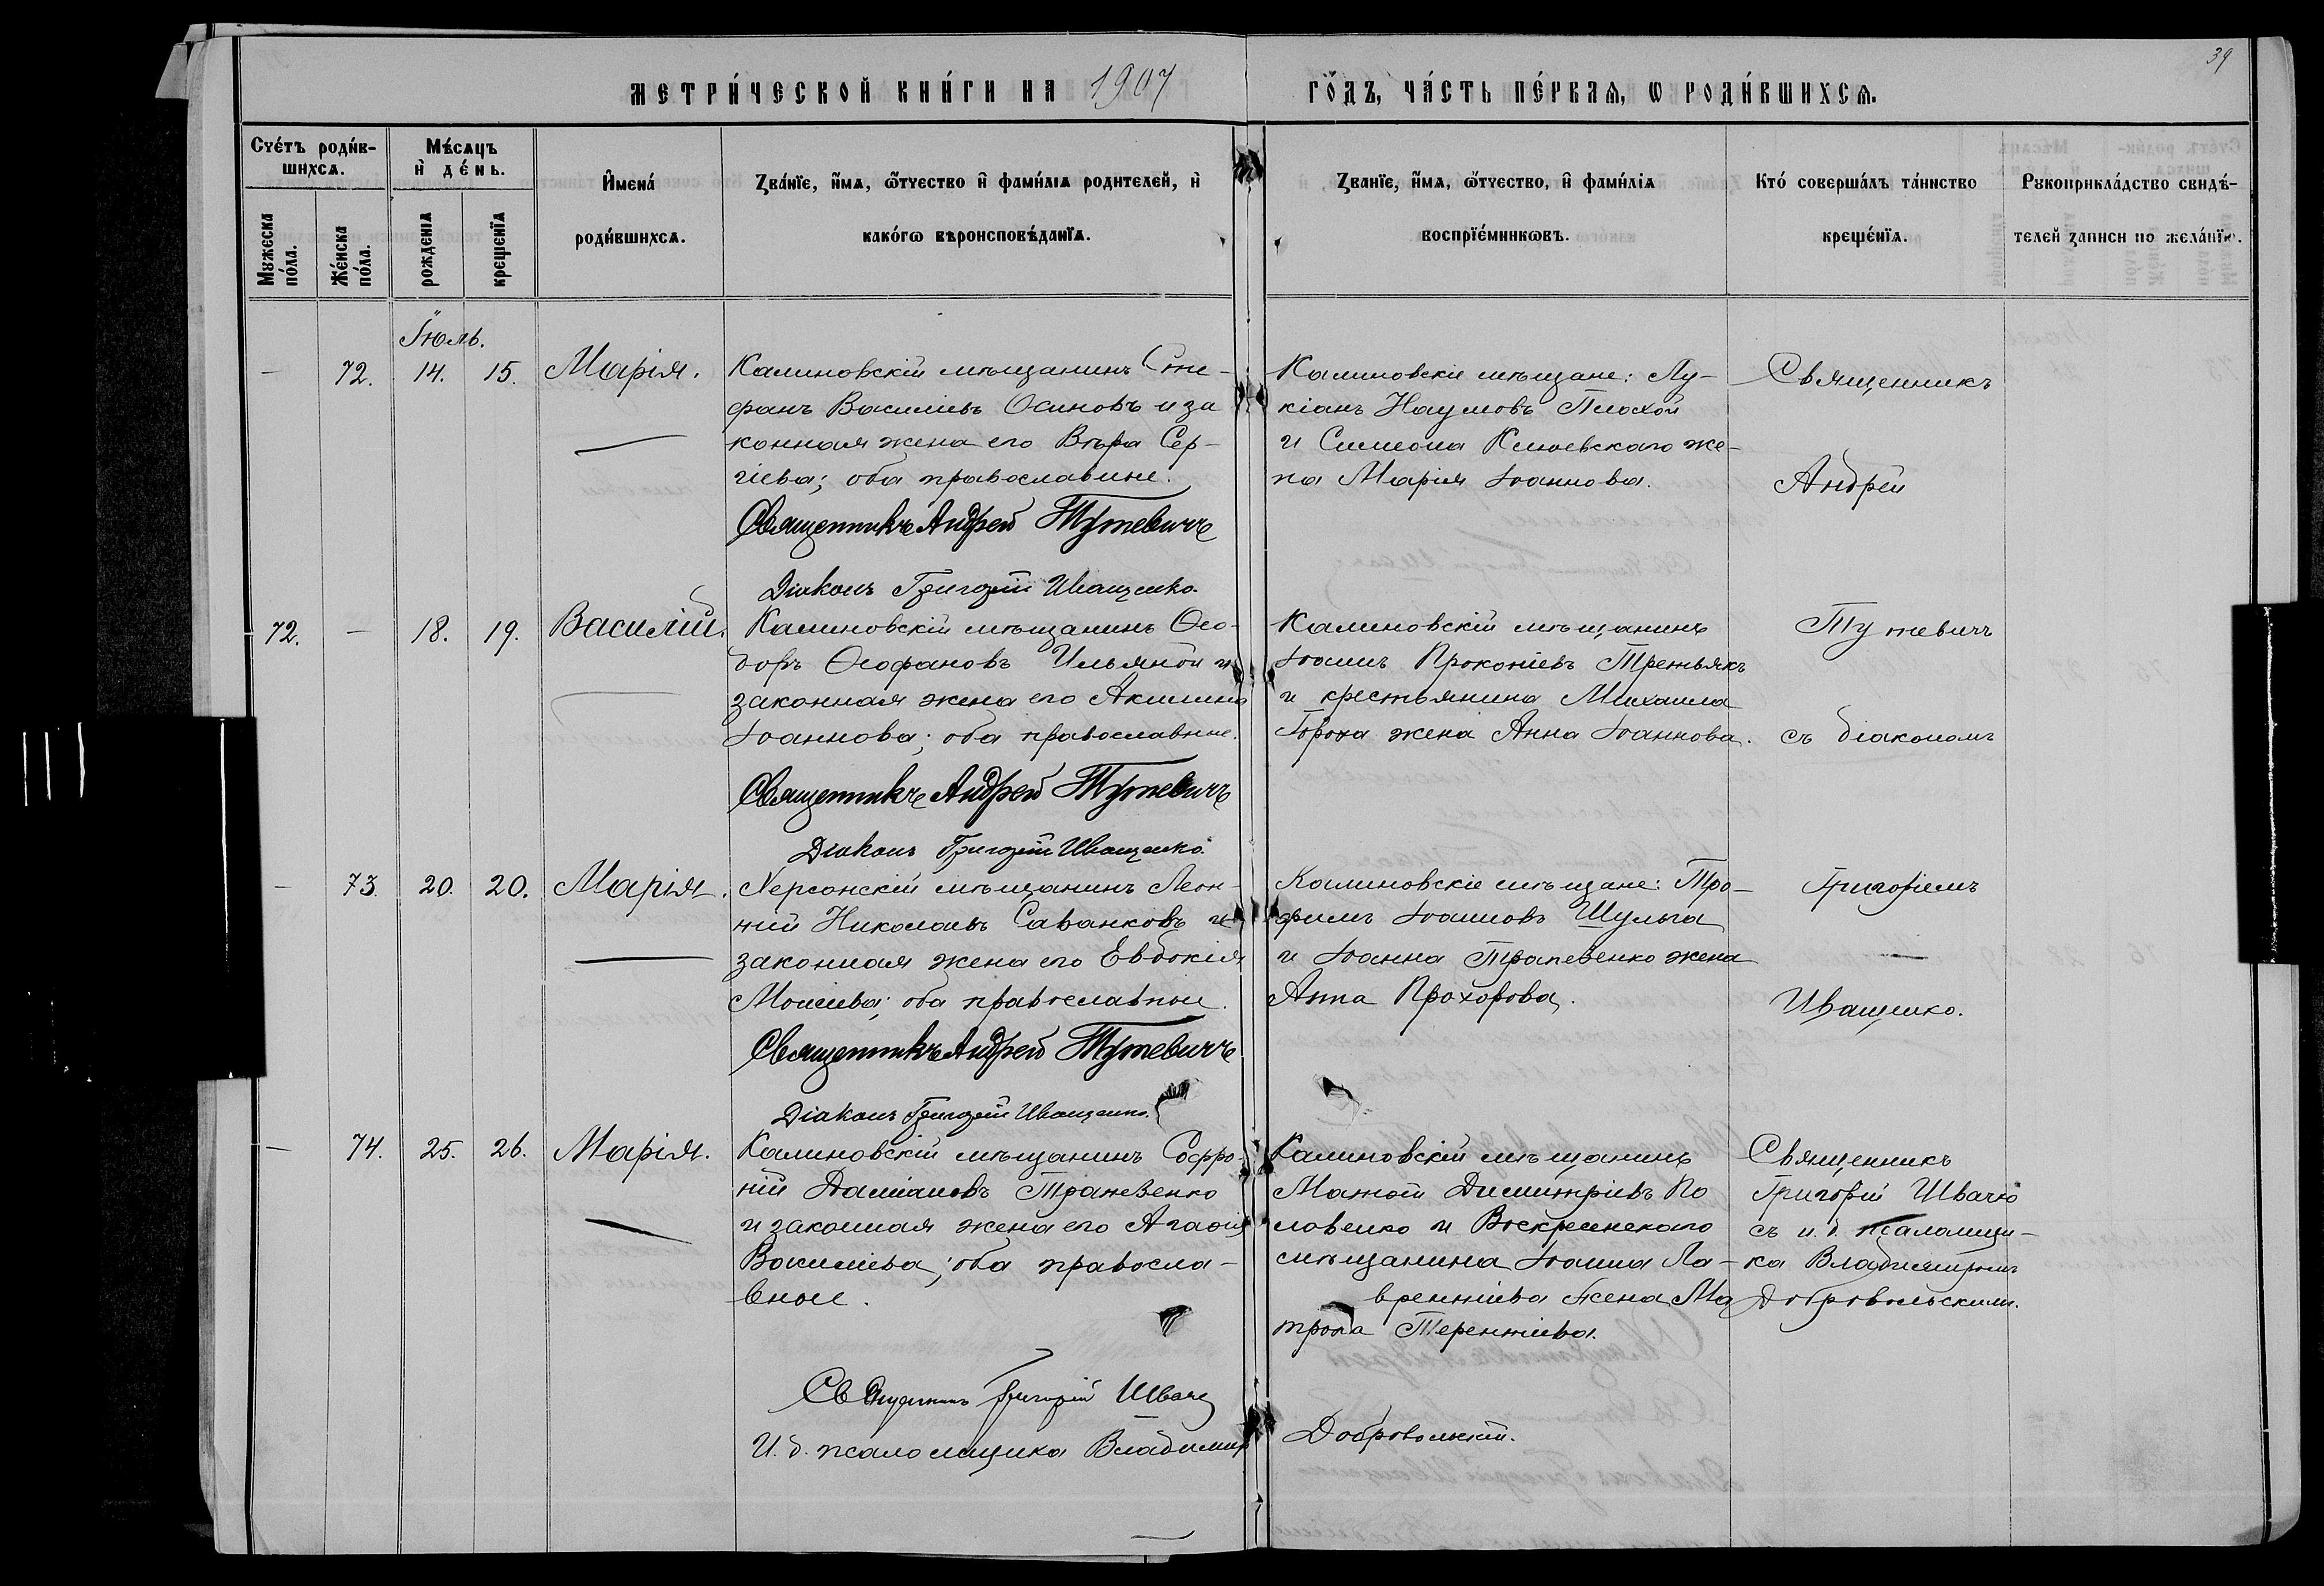 39
МЕТРИ́ЧЕСКОЙ КНИ́ГИ НА 1907 ГО́ДЪ, ЧА́СТЬ ПЕ́РВАЯ, Ѡ РОДИ́ВШИХСЯ.
Сче́тъ роди́в-
шихсѧ.
Мꙋжеска
по́ла.
Же́нска
по́ла.
Мѣ́сѧцъ
и҆ де́нь.
рожденїѧ
крещенїѧ
И҆мена́
роди́вшихсѧ.
Ꙁва́нїе, и҆́мѧ, ѿчество и҆ фами́лїѧ родителей, и҆
како́гѡ вѣроисповѣ́данїѧ.
Ꙁванїе, и҆́мѧ, ѿчество, и҆ фами́лїѧ
воспрїе́мникѡвъ.
Кто́ соверша́лъ та́инство
креще́нїѧ.
Рꙋкоприкла́дство свидѣ́-
телей ꙁаписи по жела́нїю.
Іюль.
— 72. 14. 15. Марія.
Калиновскій мѣщанинъ Сте-
фанъ Василіевъ Осиповъ и за
конная жена его Вѣра Сер-
гіева; оба православные.
Священникъ Андрей Тутевичъ
Діаконъ Григорій Иващенко.
Калиновскіе мѣщане: Лу-
кіанъ Наумовъ Плохой
и Симеона Клюевскаго же-
на Марія Іоаннова.
Священникъ
Андрей
72. — 18. 19. Василій.
Калиновскій мѣщанинъ Ѳео-
доръ Ѳеофановъ Ильяной и
законная жена его Акилина
Іоаннова; оба православные.
Священникъ Андрей Тутевичъ
Діаконъ Григорій Иващенко.
Калиновскій мѣщанинъ
Іоаннъ Прокопіевъ Третьякъ
и крестьянина Михаила
Гороха жена Анна Іоаннова.
Тутевичъ
съ діакономъ
— 73. 20. 20. Марія.
Херсонскій мѣщанинъ Леон-
тій Николаевъ Саванковъ и
законная жена его Евдокія
Моисеева; оба православные.
Священникъ Андрей Тутевичъ
Діаконъ Григорій Иващенко.
Калиновскіе мѣщане: Тро-
фимъ Іоанновъ Шульга
и Іоанна Трапезенко жена
Анна Прохорова.
Григоріемъ
—
Иващенко.
— 74. 25. 26. Марія.
Калиновскій мѣщанинъ Софро-
ній Даміановъ
и законная жена его Агаѳія
Василіева; оба правосла-
вные.
Священникъ Григорій Швачо
И. д. псаломщика Владимиръ Добровольскій.
Калиновскій мѣщанинъ
Матѳей Димитріевъ По
ловенко и Воскресенскаго
мѣщанина Іоанна Ла-
врентіева жена Ма
трона Терентіева.
Священникъ
Григорій Швачо
съ и. д. псаломщи-
ка Владимиромъ
Добровольскимъ.